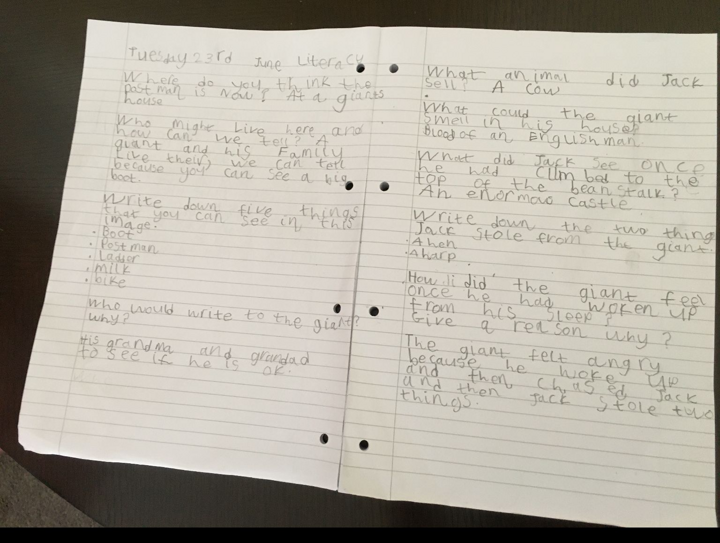 Tuesday 23rd June Literacy
Where do you think the
postman is Now? At a giants
house
Who might Live here and
how can we tell? A
giant and his Family
Live there, we can tell
because you can see a big
boot.
Write down five things
that you can see in this
image.
• Boot
• Postman
• Ladder
• milk
• bike
Who would write to the giant?
why?
His grandma and grandad
to see if he is ok.
What animal did Jack
sell? A cow
What could the giant
smell in his house?
Blood of an Englishman.
What did Jack see once
he had climbed to the
top of the beanstalk?
An enormous castle
Write down the two thing
Jack stole from the giant.
• A hen
• A harp.
How did the giant feel
once he had woken up
from his sleep?
Give a reason why?
The giant felt angry
because he woke up
and then chased Jack
and then Jack stole two
things.